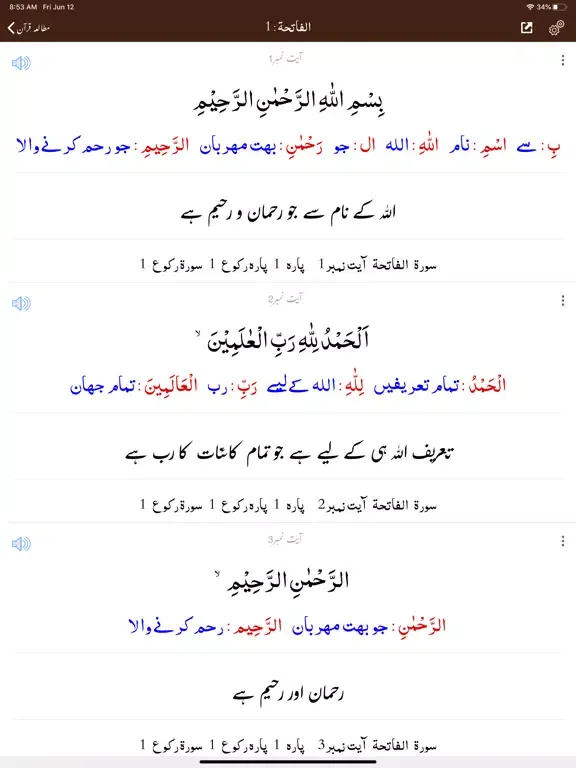 8:53 AM Fri Jun 12 34%
مطالعہ قرآن الفاتحة : 1
آیت نمبر 1
بِسْمِ اللّٰهِ الرَّحْمٰنِ الرَّحِيْمِ
بِ : سے اسْمِ : نام اللّٰهِ : الله ال : جو رَحْمٰنِ : بهت مهربان الرَّحِيمِ : جو رحم كرنے والا
اللہ کے نام سے جو رحمان و رحیم ہے
سورة الفاتحة آیت نمبر 1 پارہ 1 پارہ رکوع 1 سورة رکوع 1
آیت نمبر 2
اَلْحَمْدُ لِلّٰهِ رَبِّ الْعٰلَمِيْنَ ۙ
الْحَمْدُ : تمام تعریفیں لِلّٰهِ : الله كے لیے رَبِّ : رب الْعَالَمِينَ : تمام جهان
تعریف اللہ ہی کے لیے ہے جو تمام کائنات کا رب ہے
سورة الفاتحة آیت نمبر 2 پارہ 1 پارہ رکوع 1 سورة رکوع 1
آیت نمبر 3
الرَّحْمٰنِ الرَّحِيْمِ ۙ
الرَّحْمٰنِ : جو بهت مهربان الرَّحِيمِ : رحم كرنے والا
رحمان اور رحیم ہے
سورة الفاتحة آیت نمبر 3 پارہ 1 پارہ رکوع 1 سورة رکوع 1